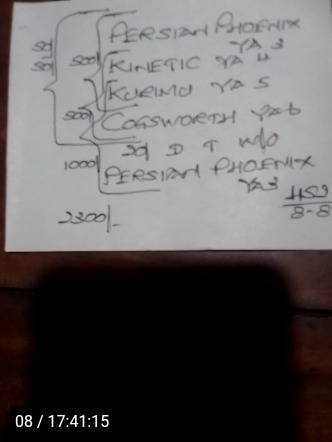 PERSIAN PHOENIX
YA 3
50/
50/
500/
KINETIC YA 4
KURIMU YA 5
500/
COGSWORTH YA 6
20/ D T W/O
1000/
PERSIAN PHOENIX
YA 3
2300/-
8-8
08 / 17:41:15